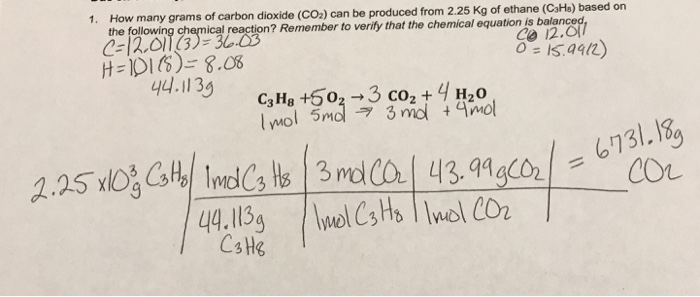 1. How many grams of carbon dioxide (CO₂) can be produced from 2.25 Kg of ethane (C₃H₈) based on
the following chemical reaction? Remember to verify that the chemical equation is balanced.
C=12.011(3)=36.03
H=101(8)=8.08
44.113g
CO 12.011
O=15.99(2)
C₃H₈ +5O₂ →3 CO₂ + 4 H₂O
1mol 5mol → 3 mol + 4mol
2.25 x10³g C₃H₈ | 1mol C₃H₈ | 3 mol CO₂ | 43.99gCO₂ | = 6731.18g CO₂
44.113g C₃H₈ | 1mol C₃H₈ | 1mol CO₂